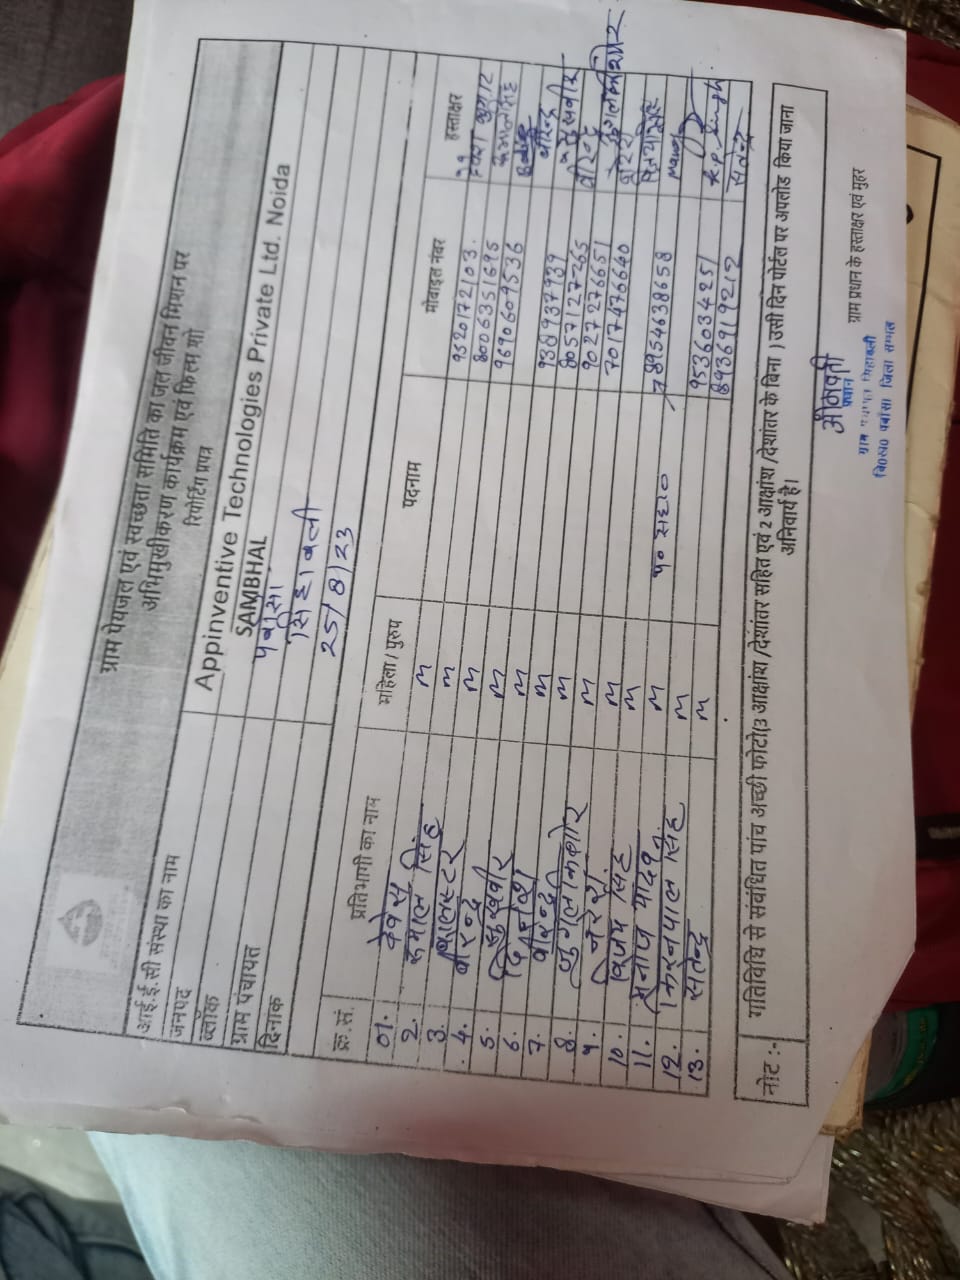 ग्राम पेयजल एवं स्वच्छता समिति का जल जीवन मिशन पर
अभिमुखीकरण कार्यक्रम एवं फिल्म शो
रिपोर्टिंग प्रपत्र
आई.ई.सी संस्था का नाम Appinventive Technologies Private Ltd. Noida
जनपद SAMBHAL
ब्लॉक पवांसा
ग्राम पंचायत सिहावली
दिनांक 25/8/23
क्र.सं. प्रतिभागी का नाम महिला / पुरुष पदनाम मोबाईल नंबर हस्ताक्षर
01. M 9320172103.
2. कमाल सिंह M 8006351695
3. M 9690609536
4. वीरेन्द्र M
5. सुखवीर M 9389937939
6. दिनेश M 8057127265
7. M 9027276651
8. जुगल किशोर M 7017476640
9. नरेश M
10. विजय सिंह M 8954638658
11. मनोज यादव M पं० सहा०
12. मदनपाल सिंह M 9536034251 K.P. Singh
13. सतेन्द्र M 8936919212 सतेन्द्र
नोट :- गतिविधि से संबंधित पांच अच्छी फोटो(3 आक्षांश /देशांतर सहित एवं 2 आक्षांश /देशांतर के बिना ) उसी दिन पोर्टल पर अपलोड किया जाना
अनिवार्य है।
ओमवती
ग्राम प्रधान के हस्ताक्षर एवं मुहर
प्रधान
ग्राम पंचायत सिहावली
वि०ख० पवांसा जिला सम्भल